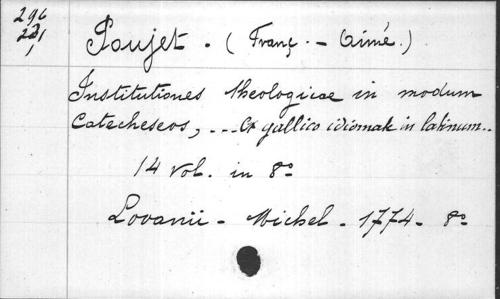 296
221
1
Poujet. (Franç. - Aimé.)
Institutiones theologicae in modum
Catecheseos, ... Ex gallico idiomate in latinum..
14 vol. in 8º
Lovanii - Michel - 1774 - 8º